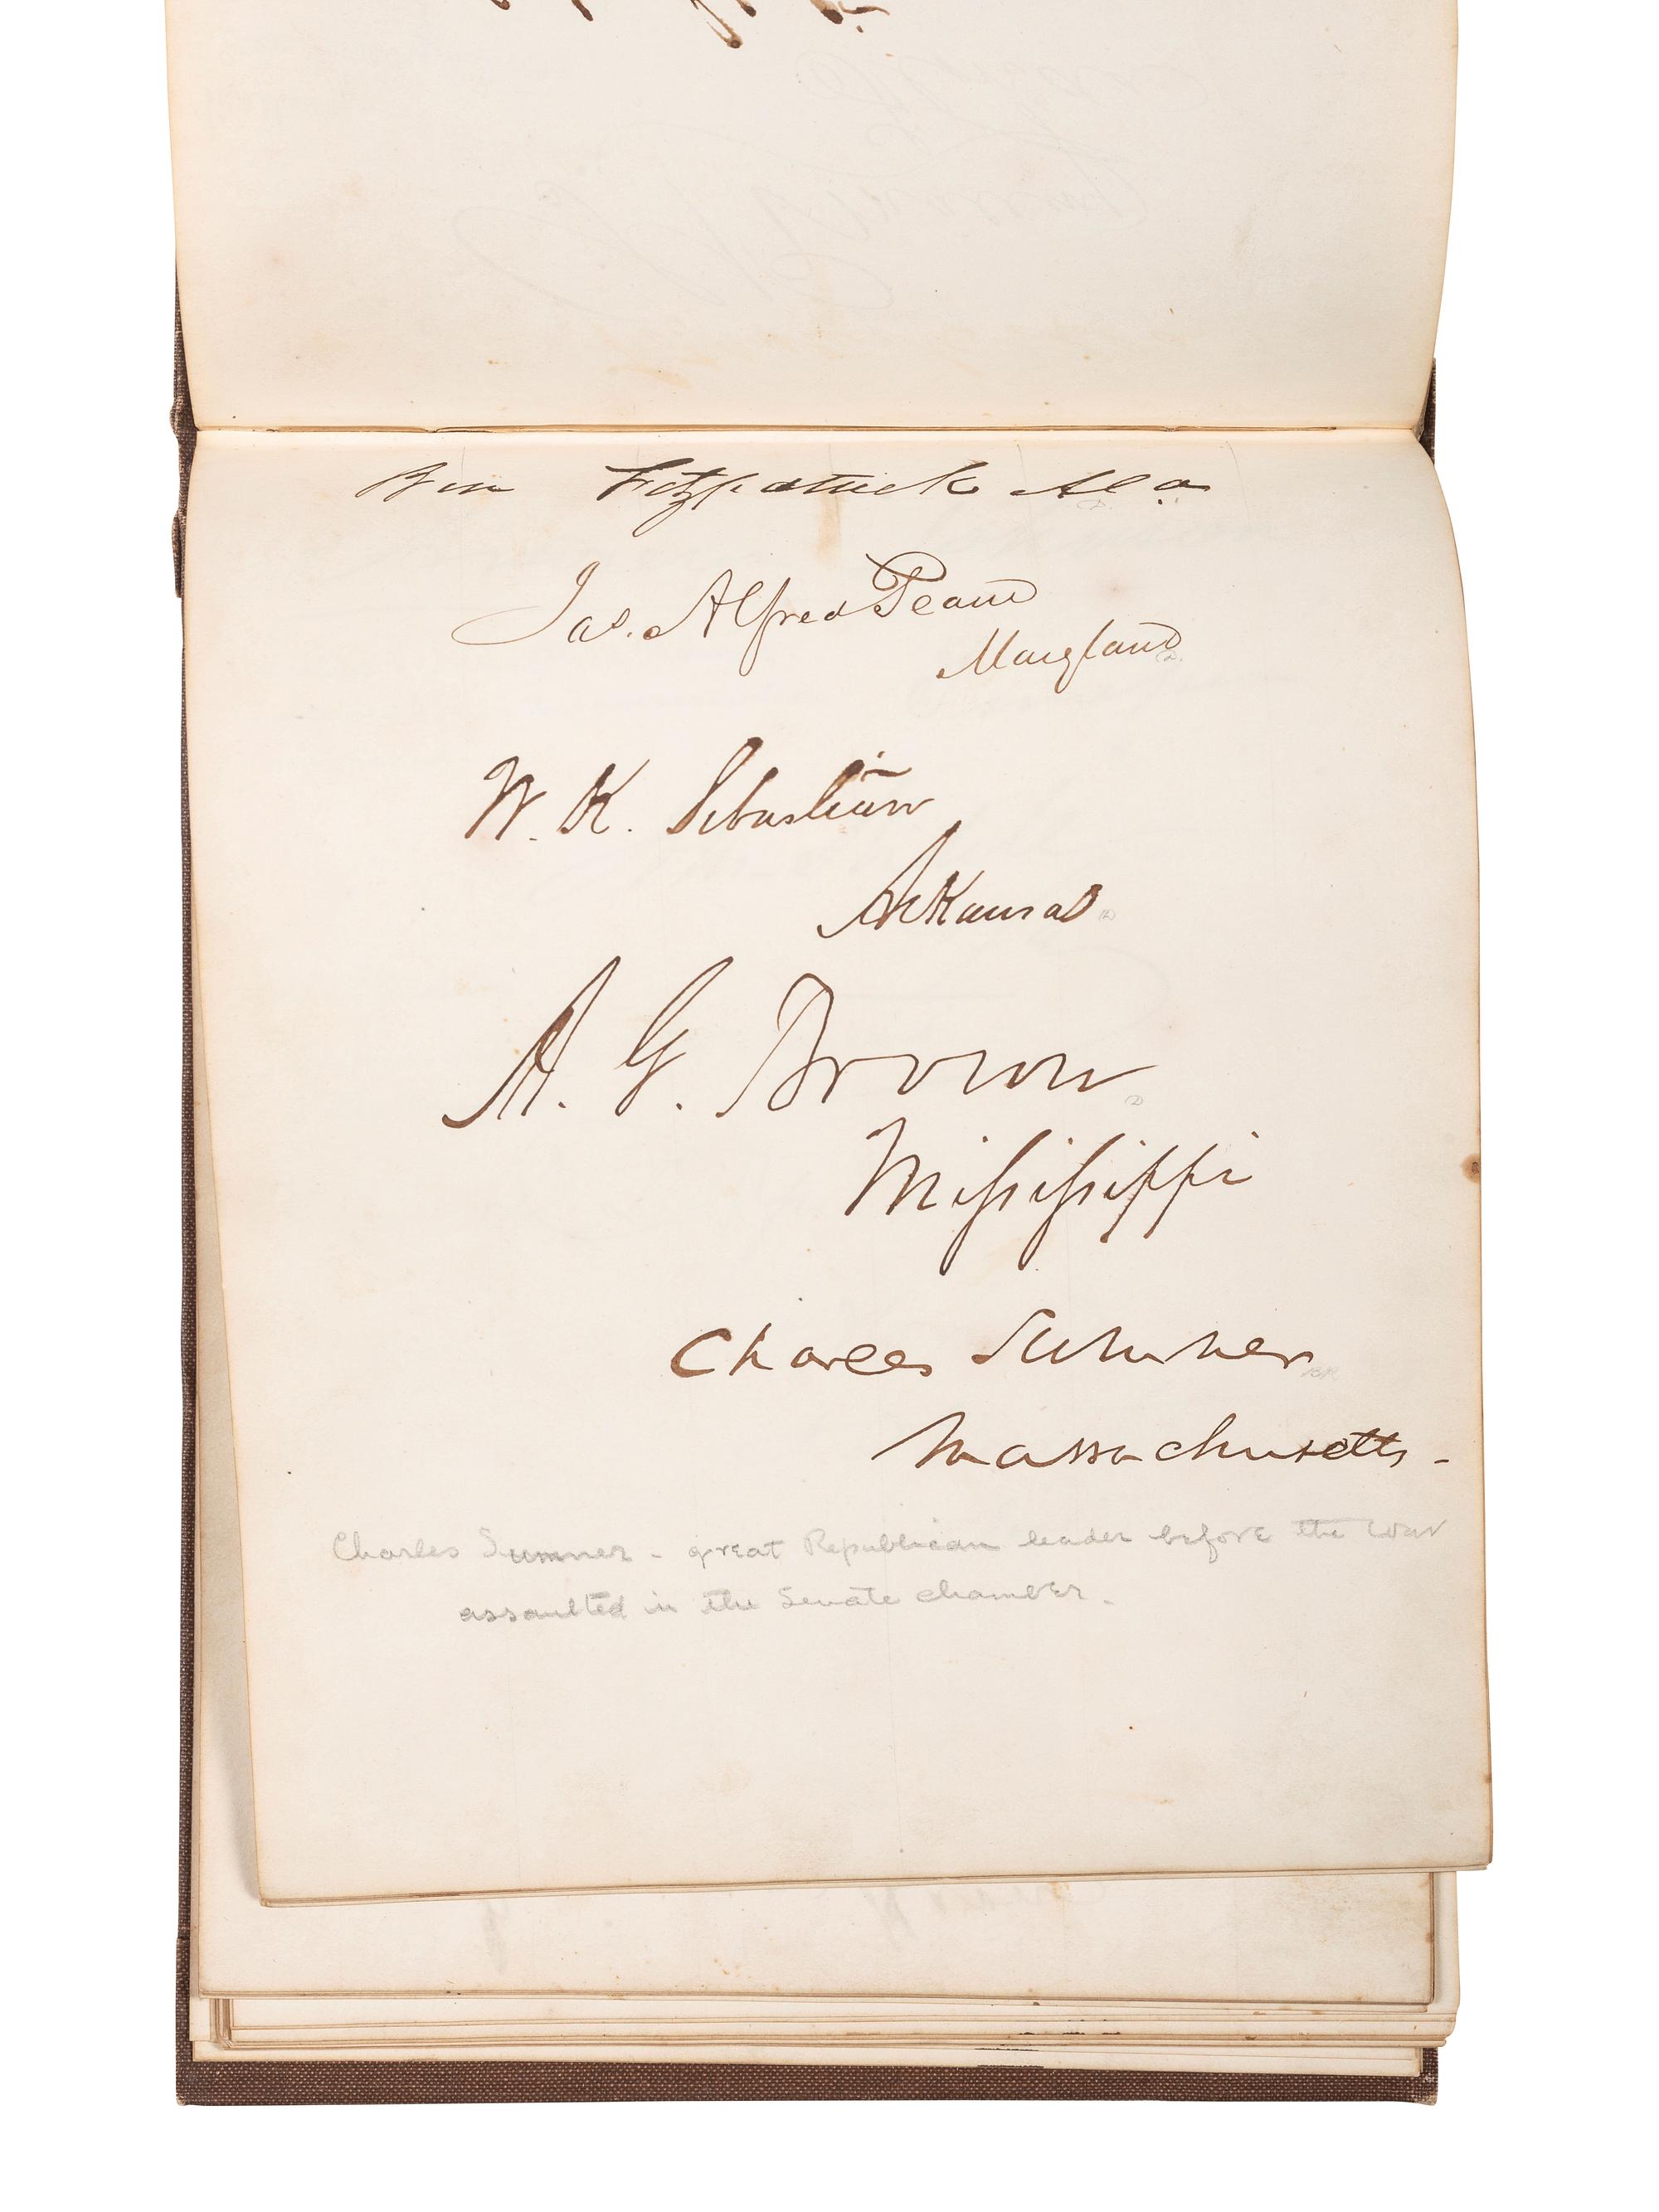 Ben Fitzpatrick Ala
Jas. Alfred Pearce
Maryland
W. K. Sebastian
Arkansas
A. G. Brown
Mississippi
Charles Sumner
Massachusetts -
Charles Sumner - great Republican leader before the War
assaulted in the Senate chamber.